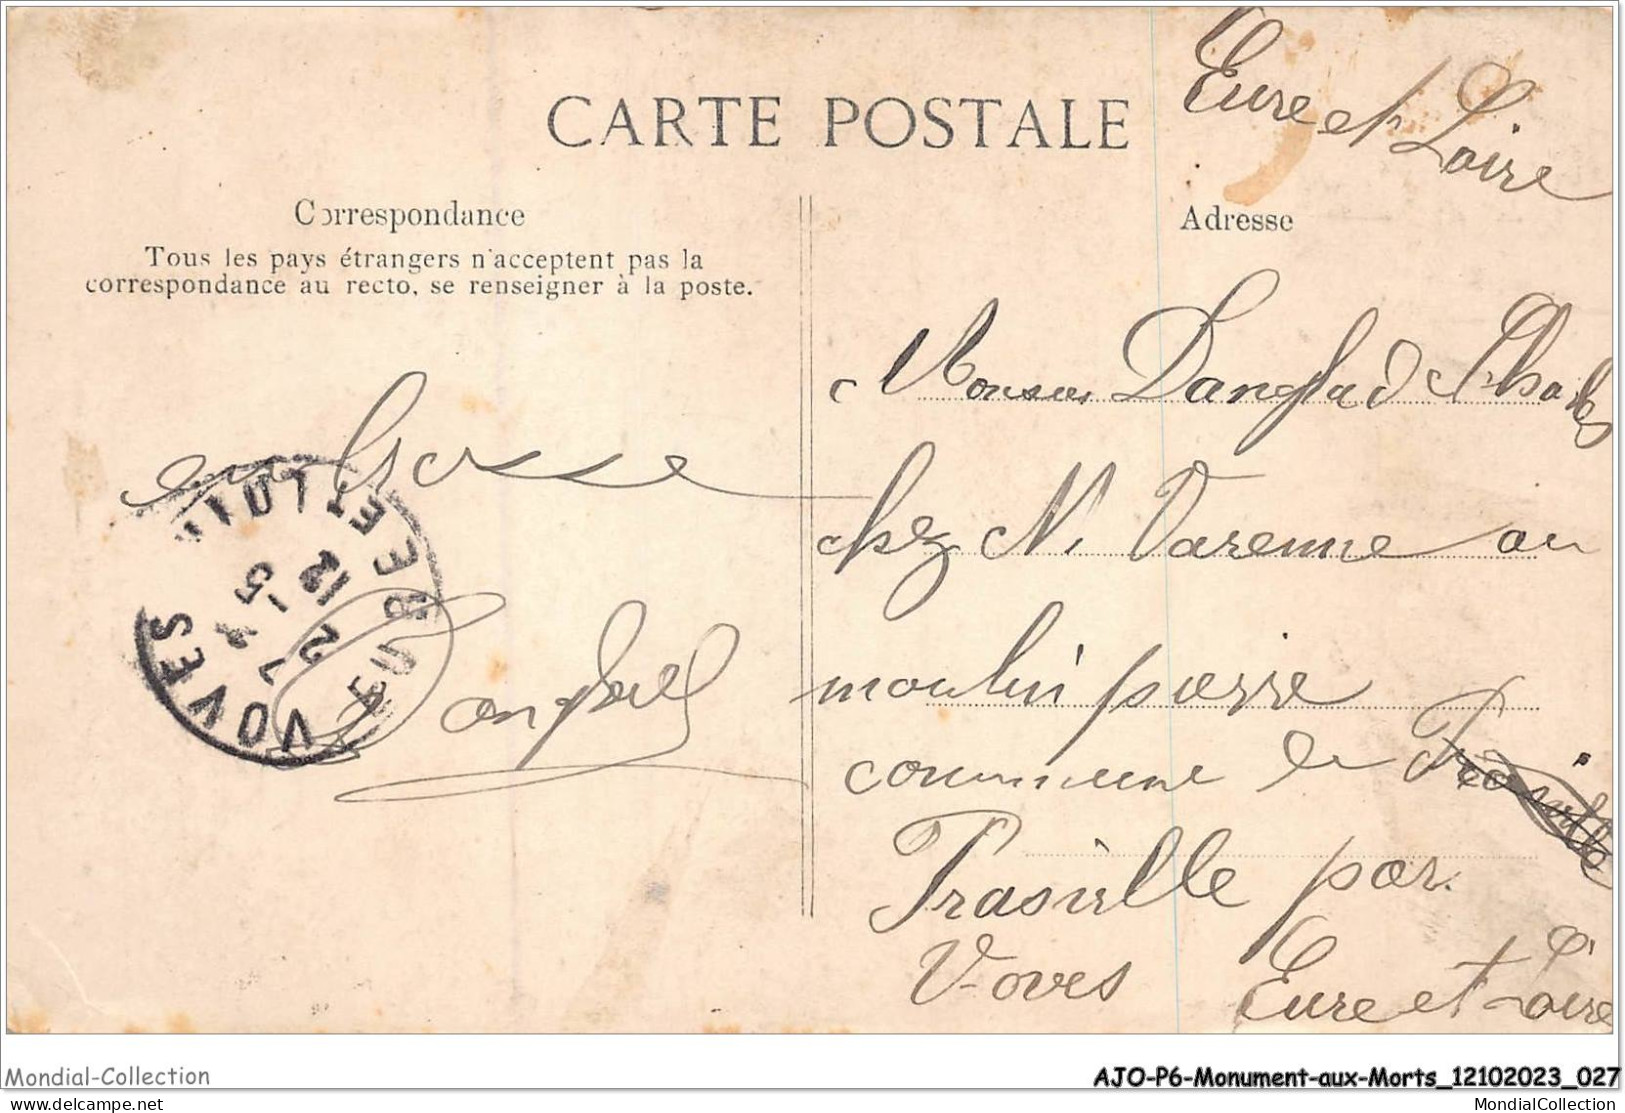 CARTE POSTALE
Eure et Loire
Correspondance
Tous les pays étrangers n'acceptent pas la
correspondance au recto, se renseigner à la poste.
Adresse
VOVES EURE ET LOIR
12 5
Monsieur Danglad Charles
chez M. Varenne au
moulin pierre
commune de
Prasville par
Voves Eure et Loire
Mondial-Collection
AJO-P6-Monument-aux-Morts_12102023_027
delcampe.net
MondialCollection